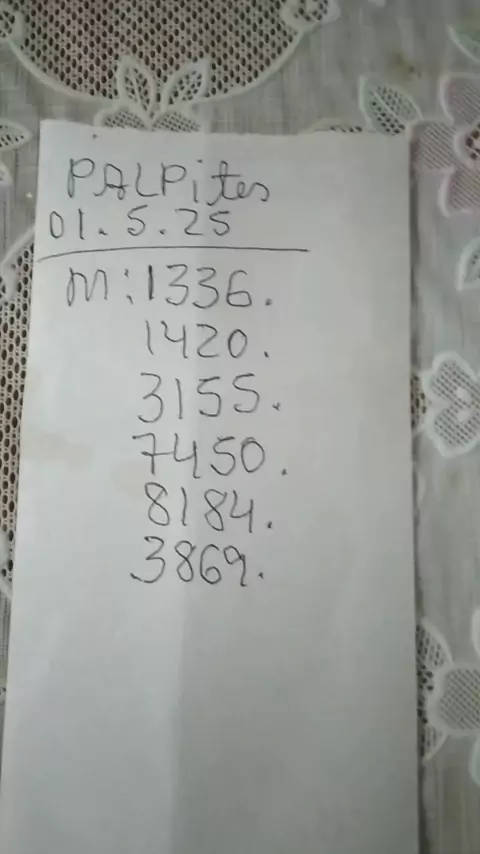 PALPites
01.5.25
M:1336.
1420.
3155.
7450.
8184.
3869.